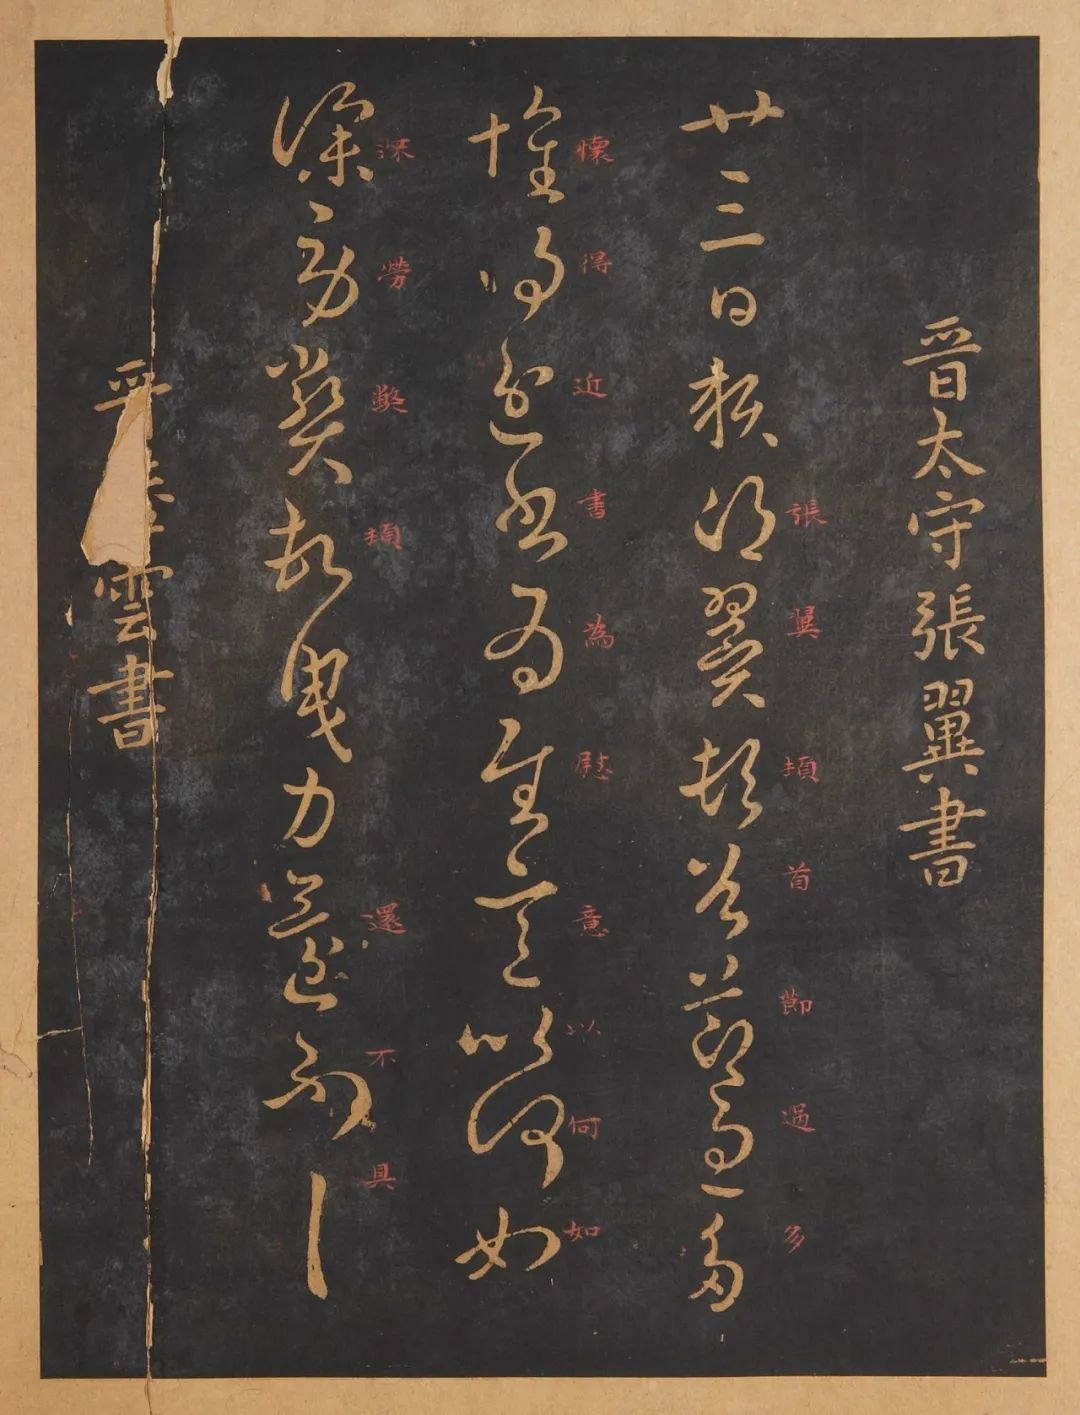 晉太守張翼書
張翼頓首節過多
廿三日張翼頓首節過多
懷得近書為慰意以何如
懷得近書為慰意以何如
深勞弊頓還不具
深勞弊頓曳力還不具
雲書